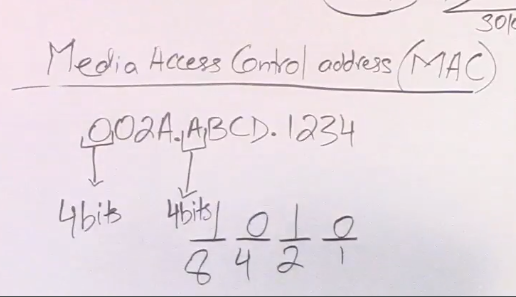 Media Access Control address (MAC)
002A.ABCD.1234
4bits 4bits
1 0 1 0
8 4 2 1